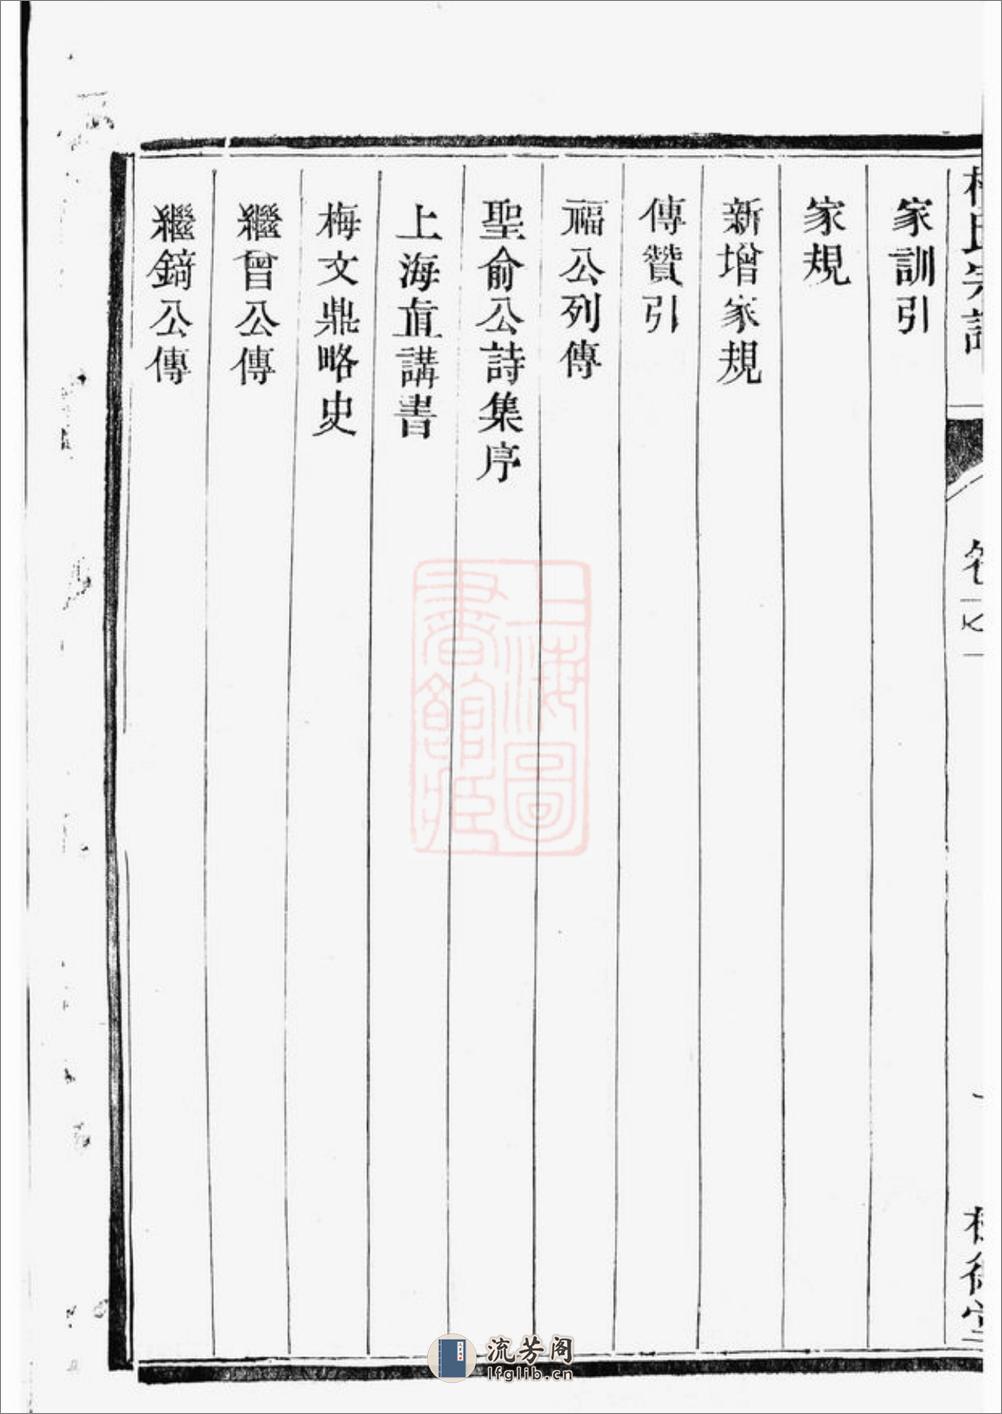 家訓引
家規
新增家規
傳贊引
福公列傳
聖俞公詩集序
上海直講書
梅文鼎略史
繼曾公傳
繼錡公傳
上海圖書館藏
流芳阁
lfglib.cn